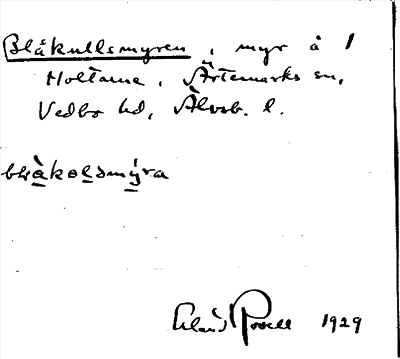 Blåkullsmyren, myr å 1
Holtarne, Ärtemarks sn,
Vedbo hd, Älvsb. l.
blɑ̀kolsmýra
Erland Rosell 1929